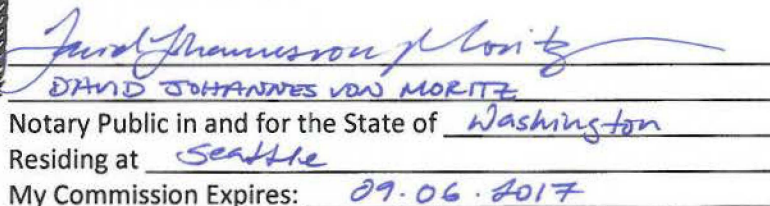 David Johannes von Moritz
DAVID JOHANNES VON MORITZ
Notary Public in and for the State of Washington
Residing at Seattle
My Commission Expires: 09.06.2017